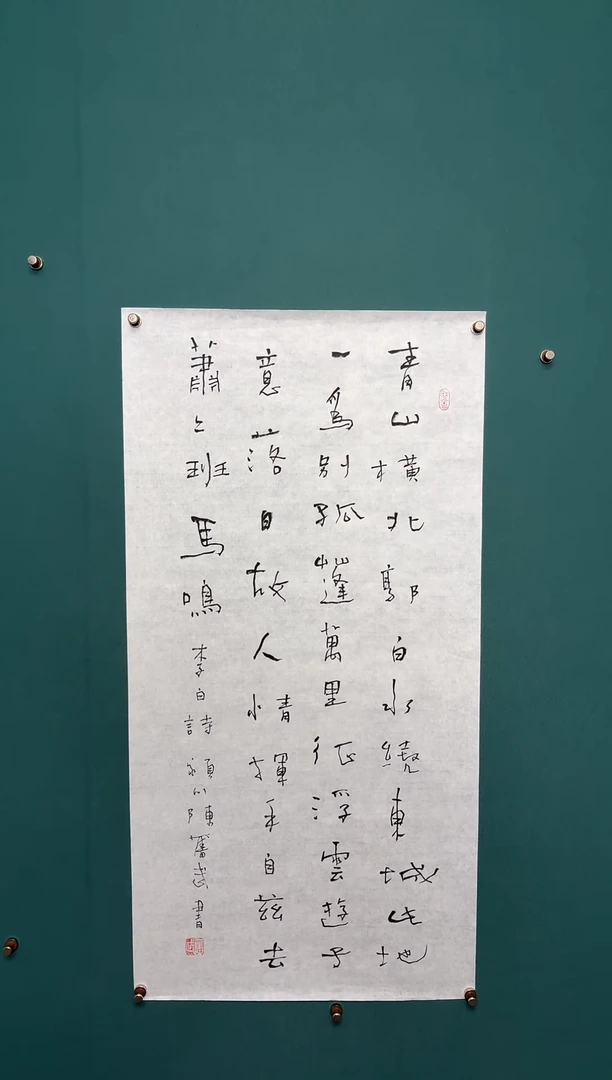 青山橫北郭白水繞東城此地
一爲別孤蓬萬里征浮雲遊子
意落日故人情揮手自茲去
蕭〻班馬鳴 李白詩 潁川陳書